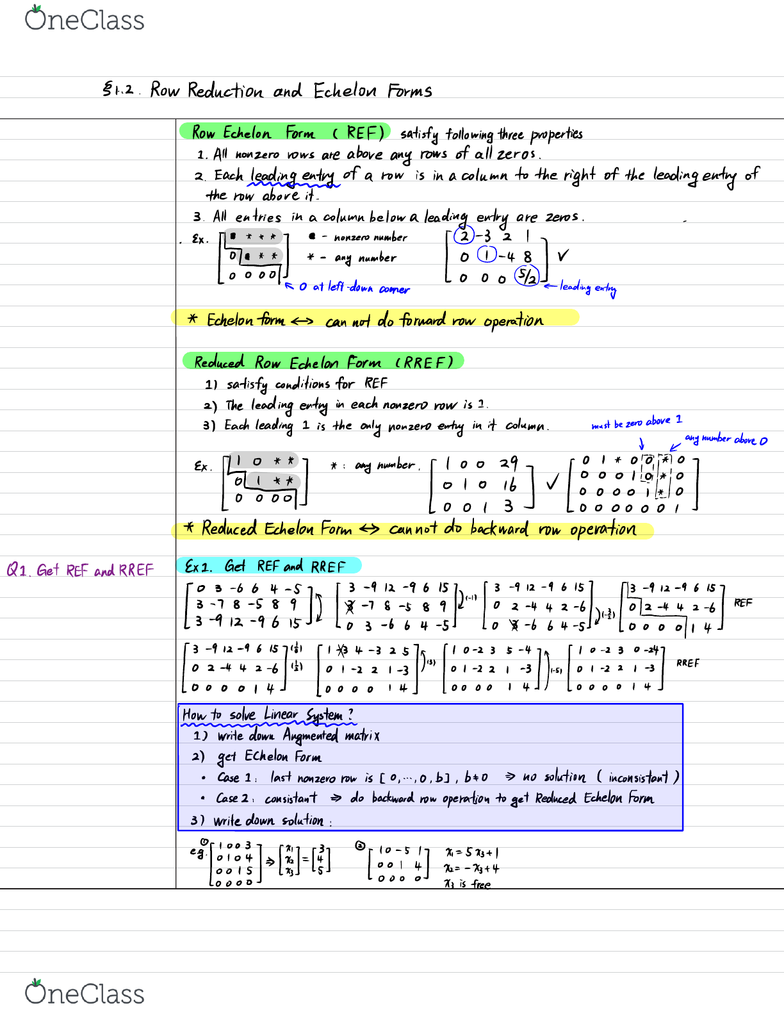 OneClass
§1.2. Row Reduction and Echelon Forms
Row Echelon Form ( REF) satisfy following three properties
1. All nonzero rows are above any rows of all zeros.
2. Each leading entry of a row is in a column to the right of the leading entry of
the row above it.
3. All entries in a column below a leading entry are zeros.
Ex.
■ * * *
0 ■ * *
0 0 0 0
■ - nonzero number
* - any number
0 at left-down corner
2 -3 2 1
0 1 -4 8
0 0 0 5/2
✓
← leading entry
* Echelon form ↔ can not do forward row operation
Reduced Row Echelon Form (RREF)
1) satisfy conditions for REF
2) The leading entry in each nonzero row is 1.
3) Each leading 1 is the only nonzero entry in it column.
must be zero above 1
any number above 0
Ex.
1 0 * *
0 1 * *
0 0 0 0
* : any number.
1 0 0 29
0 1 0 16
0 0 1 3
✓
0 1 * 0 0 * 0
0 0 0 1 0 * 0
0 0 0 0 1 * 0
0 0 0 0 0 0 1
* Reduced Echelon Form ↔ cannot do backward row operation
Q1. Get REF and RREF
Ex1. Get REF and RREF
0 3 -6 6 4 -5
3 -7 8 -5 8 9
3 -9 12 -9 6 15
3 -9 12 -9 6 15
3 -7 8 -5 8 9
0 3 -6 6 4 -5
(-1)
3 -9 12 -9 6 15
0 2 -4 4 2 -6
0 3 -6 6 4 -5
(-3/2)
3 -9 12 -9 6 15
0 2 -4 4 2 -6
0 0 0 0 1 4
REF
3 -9 12 -9 6 15 (1/3)
0 2 -4 4 2 -6 (1/2)
0 0 0 0 1 4
1 -3 4 -3 2 5
0 1 -2 2 1 -3
0 0 0 0 1 4
(3)
1 0 -2 3 5 -4
0 1 -2 2 1 -3
0 0 0 0 1 4
(-5)
1 0 -2 3 0 -24
0 1 -2 2 1 -3
0 0 0 0 1 4
RREF
How to solve Linear System?
1) write down Augmented matrix
2) get Echelon Form
• Case 1: last nonzero row is [ 0, ..., 0, b ], b≠0 ⇒ no solution ( inconsistant )
• Case 2: consistant ⇒ do backward row operation to get Reduced Echelon Form
3) write down solution:
eg. ①
1 0 0 3
0 1 0 4
0 0 1 5
0 0 0 0
⇒ [x1 x2 x3] = [3 4 5]
②
1 0 -5 1
0 0 1 4
0 0 0 0
x1 = 5x3 + 1
x2 = -x3 + 4
x3 is free
OneClass